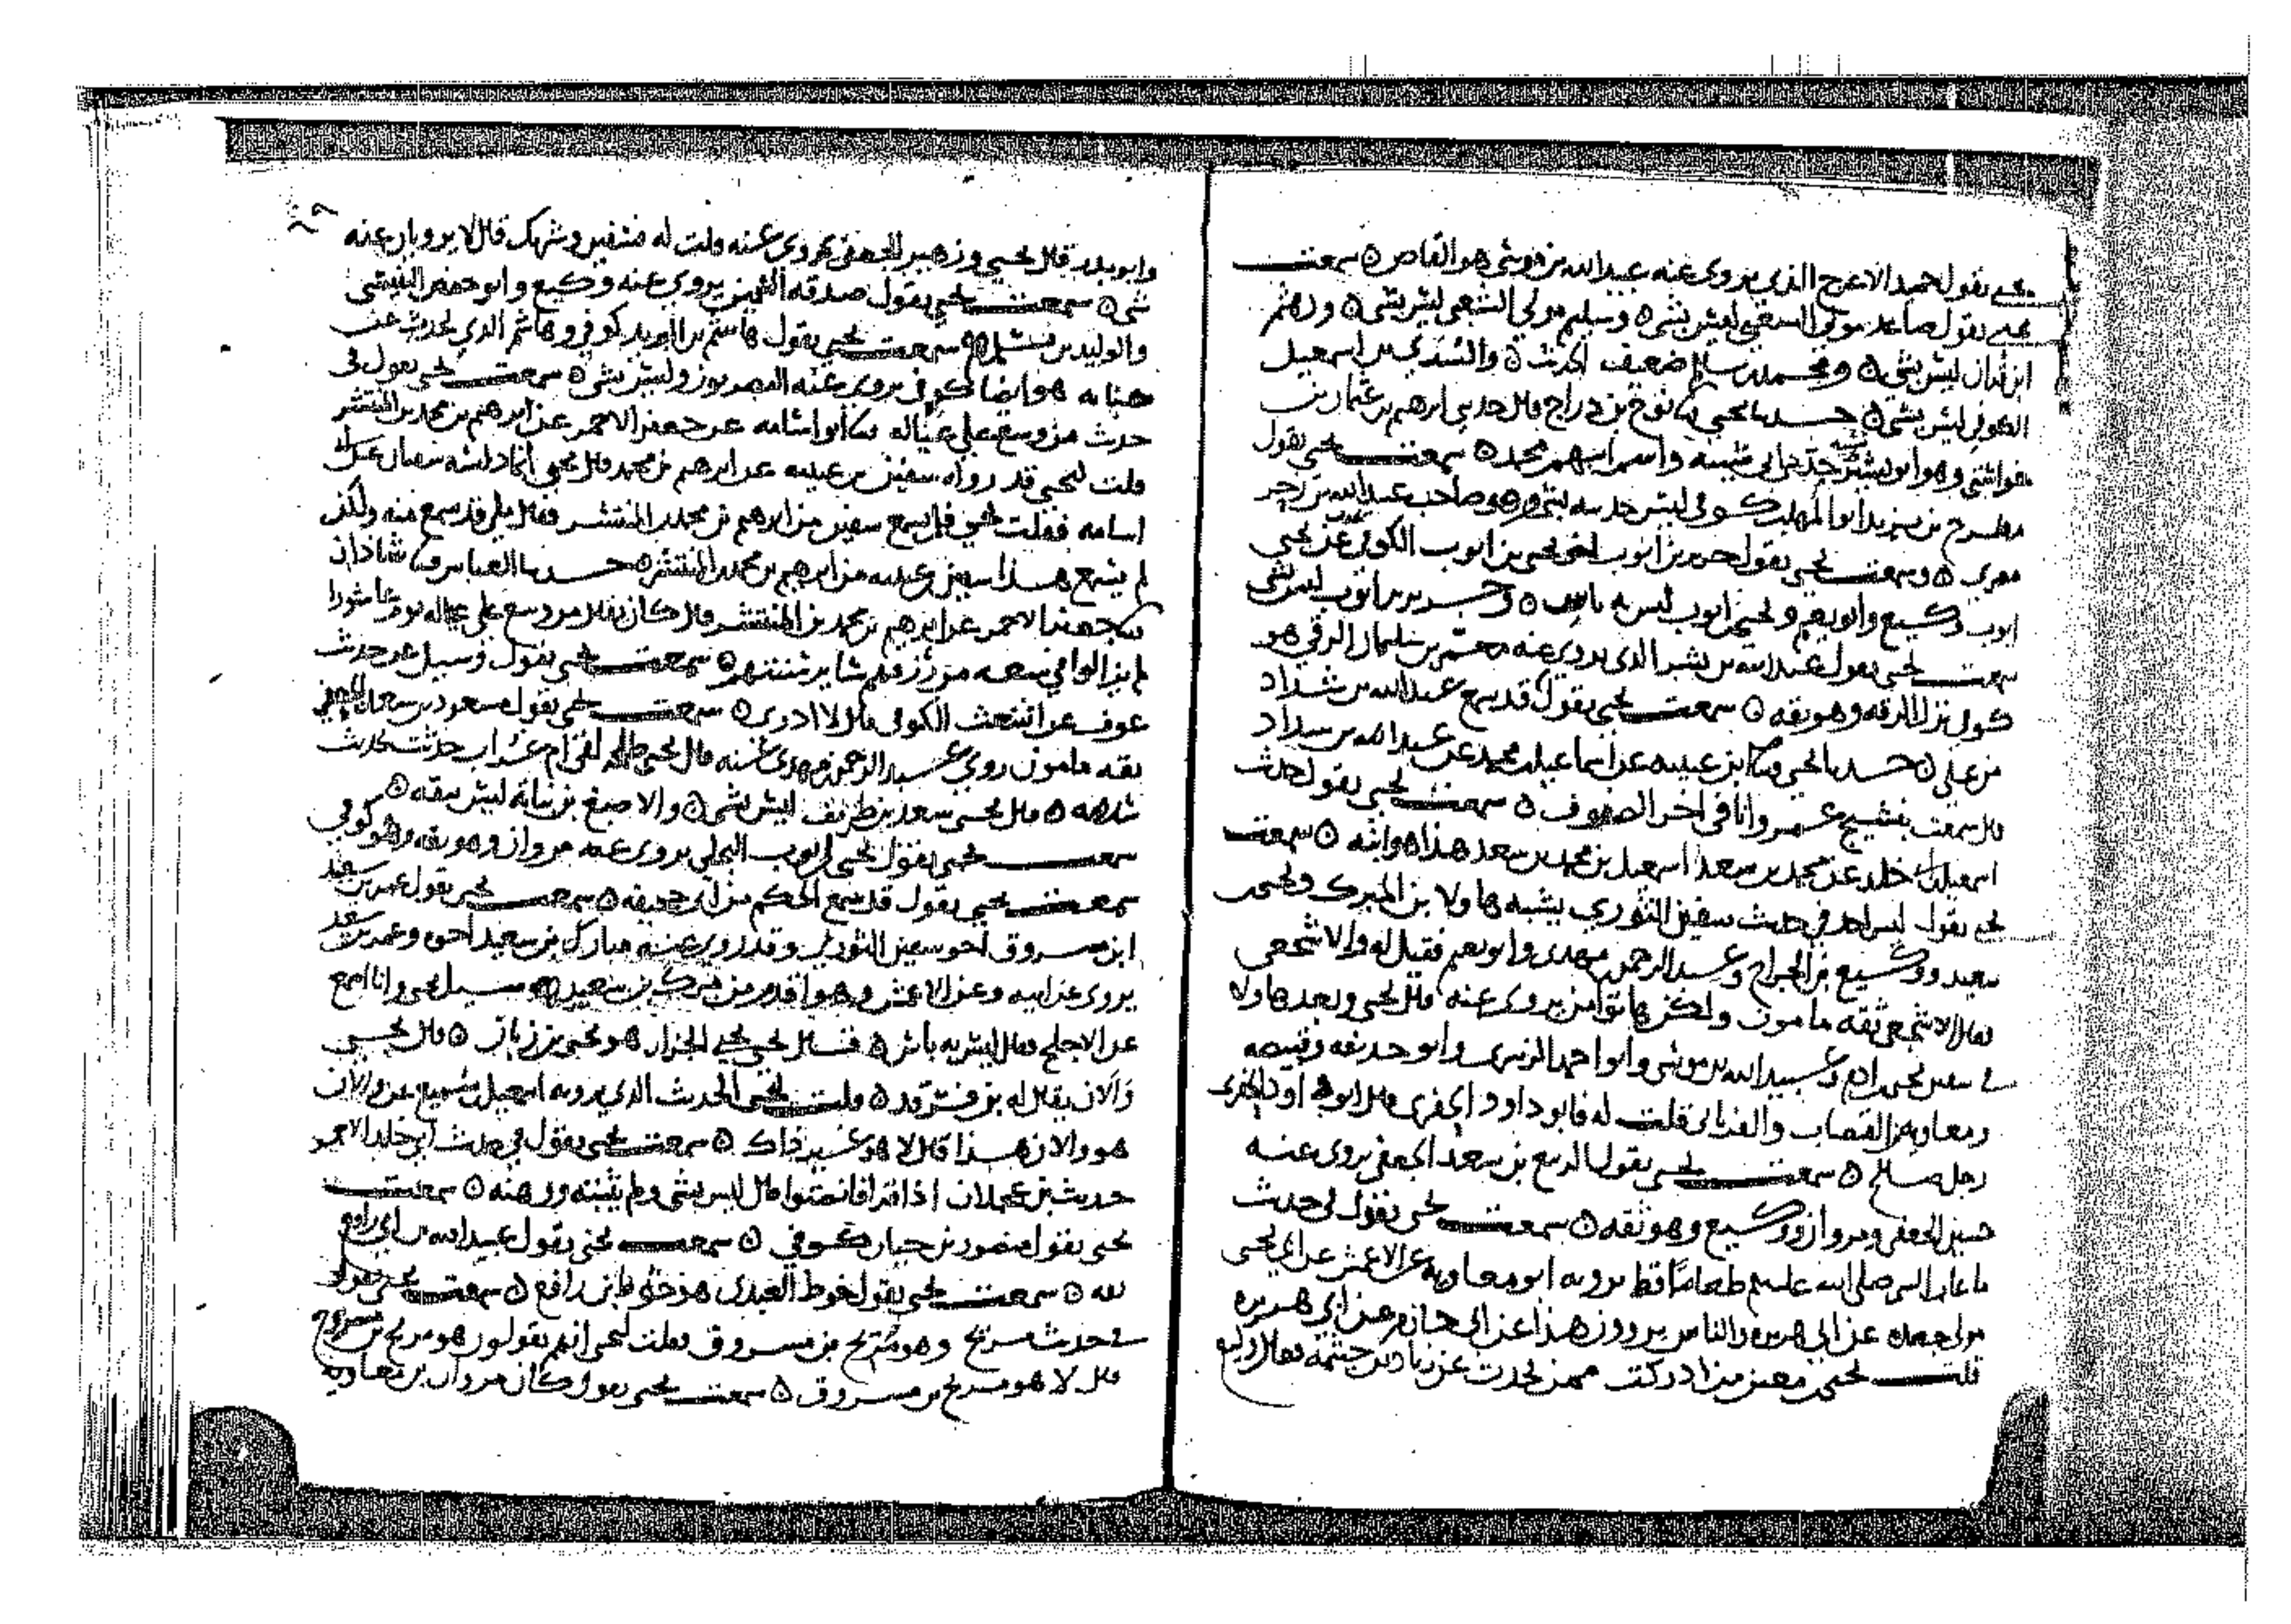 يحيى يقول حميد الاعرج الذي يروي عنه عبد الله بن موسى هو القاص ٥ سمعت
يحيى يقول صاعد مولى الشعبي ليس بشي ٥ وسليم مولى الشعبي ليس بشي ٥ ودهثم
ابن قران ليس بشي ٥ ومحمد بن سالم ضعيف الحديث ٥ والسدي بن اسمعيل
الكوفي ليس بشي ٥ حدثنا يحيى نا نوح بن دراج قال حدثني ابرهيم بن عثمان بن
خواستي وهو ابو شيبه جد بني ابي شيبه واسم ابيهم محمد ٥ سمعت يحيى يقول
مطرح بن يزيد ابو المهلب كوفي ليس حديثه بشي وهو صاحب عبيد الله بن زحر
مصري ٥ وسمعت يحيى يقول جرير بن ايوب اخو يحيى بن ايوب الكوفي عن يحيى
ايوب وكيع وابو نعيم ويحيى بن ايوب ليس به باس ٥ وجرير بن ايوب ليس بشي
سمعت يحيى يقول عبد الله بن بشر الذي يروي عنه معتمر بن سليمان الرقي هو
كوفي نزل الرقه وهو ثقه ٥ سمعت يحيى يقول قد سمع عبد الله بن شداد
من علي ٥ حدثنا يحيى نا ابن عيينه عن اسماعيل بن محمد عن عبد الله بن شداد
قال سمعت نشيج عمر وانا في اخر الصفوف ٥ سمعت يحيى يقول حديث
اسمعيل بن خلد عن محمد بن سعد اسمعيل بن محمد بن سعد هذا هو ابنه ٥ سمعت
يحيى يقول ليس احد في حديث سفين الثوري يشبه هاولا بن المبرك ويحيى
سعيد ووكيع بن الجراح وعبد الرحمن بن مهدي وابو نعيم فقيل له والاشجعي
فقال الاشجعي ثقه مامون ولكن هاتوا من يروي عنه قال يحيى وبعد هاولا
في سفين يحيى بن ادم وعبيد الله بن موسى وابو احمد الزبيري وابو حذيفه وقبيصه
ومعاويه القصاب والفريابي قلت له فابو داود الحفري قال ابو داود الحفري
رجل صالح ٥ سمعت يحيى يقول الربيع بن سعد الجعفي يروي عنه
حسين الجعفي ومروان ووكيع وهو ثقه ٥ سمعت يحيى يقول في حديث
ما عاب النبي صلى الله عليه وسلم طعاما قط يرويه ابو معاويه عن الاعمش عن ابي يحيى
مولى جعده عن ابي هريره والناس يروون هذا عن ابي حازم عن ابي هريره
قلت ليحيى فممن ادركت ممن يحدث عن زياد بن خيثمه فقال وكيع
وابو بدر قال يحيى وزهير الجعفي يروي عنه قلت له فسفين وشريك قال لا يرويان عنه
شي ٥ سمعت يحيى يقول صدقه السمين يروي عنه وكيع وابو حفص التنيسي
والوليد بن مسلم ٥ سمعت يحيى يقول هاشم بن البريد كوفي وهاشم الذي يحدث عنه
هو ايضا كوفي يروي عنه البصريون وليس بشي ٥ سمعت يحيى يقول في
حديث من وسع على عياله نا ابو اسامه عن جعفر الاحمر عن ابرهيم بن محمد بن المنتشر
قلت ليحيى قد رواه سفين بن عيينه عن ابرهيم بن محمد قال يحيى انما دلسه سفيان عن ابي
اسامه فقلت ليحيى فلم يسمع سفين من ابرهيم بن محمد بن المنتشر فقال بلى قد سمع منه ولكن
لم يسمع هذا سفين بن عيينه من ابرهيم بن محمد بن المنتشر ٥ حدثنا العباس نا شاذان
نا جعفر الاحمر عن ابرهيم بن محمد بن المنتشر قال كان يقال من وسع على عياله يوم عاشورا
لم يزالوا في سعه من رزقهم سائر سنتهم ٥ سمعت يحيى يقول وسيل عن حديث
عوف عن اشعث الكوفي قال لا ادري ٥ سمعت يحيى يقول مسعود بن سعد الجعفي
ثقه مامون روى عبد الرحمن بن مهدي عنه قال يحيى
قال يحيى سعد بن طريف ليس بشي ٥ والاصبغ بن نباته ليس بثقه ٥
سمعت يحيى يقول يحيى بن ايوب البجلي يروي عنه مروان وهو ثقه وهو كوفي
سمعت يحيى يقول قد سمع الحكم من ابي جحيفه ٥ سمعت يحيى يقول عمر بن سعيد
ابن مسروق اخو سفين الثوري وقد روى عنه مبارك بن سعيد اخوه وعمر بن سعيد
يروي عن ابيه وعن الاعمش وهو اقدم من مبرك بن سعيد ٥ سيل يحيى وانا اسمع
عن الاجلح فقال ليس به باس ٥ فسئل يحيى يحيى الجزار هو يحيى بن زبان ٥ قال يحيى
والان يقال له بن فرقد ٥ قلت ليحيى الحديث الذي يرويه اسمعيل بن سميع عن والان
هو والان هذا قال لا هو غير ذاك ٥ سمعت يحيى يقول في حديث ابي خالد الاحمر
حديث بن عجلان اذا قرا فانصتوا قال ليس بشي ولم يثبته ووهنه ٥ سمعت
يحيى يقول منصور بن حيان كوفي ٥ سمعت يحيى يقول عبيد الله بن ابي رافع
ثقه ٥ سمعت يحيى يقول خوط العبدي هو خوط بن رافع ٥ سمعت يحيى يقول
في حديث سريج وهو سريج بن مسروق فقلت ليحيى انهم يقولون هو مريح بن مسروق
قال لا هو مريح بن مسروق ٥ سمعت يحيى يقول كان مروان بن معاويه